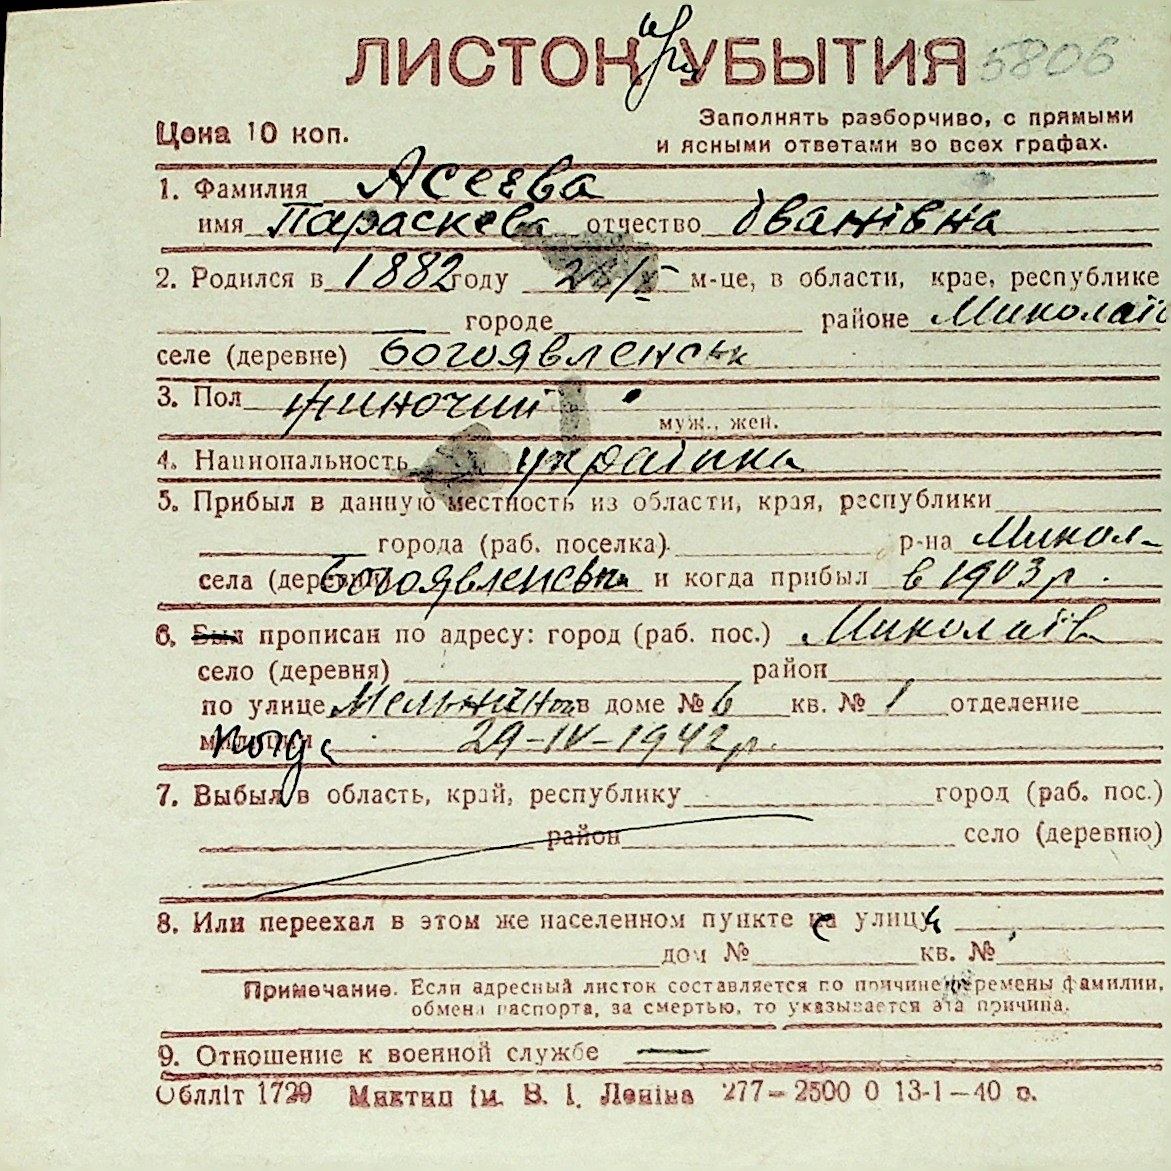 ЛИСТОК при УБЫТИЯ 5806
Цена 10 коп.
Заполнять разборчиво, с прямыми
и ясными ответами во всех графах.
1. Фамилия Асеева
имя Параскева отчество Іванівна
2. Родился в 1882 году м-це, в области, крае, республике
городе районе Миколаїв
селе (деревне) Богоявленськ
3. Пол жиночий
муж., жен.
4. Национальность українка
5. Прибыл в данную местность из области, края, республики
города (раб. поселка) р-на Микол-
села (деревни) Богоявленська и когда прибыл в 1903 р.
6. Был прописан по адресу: город (раб. пос.) Миколаїв
село (деревня) район
по улице в доме № 6 кв. № 1 отделение
милиции когда 29-IV-1942 р.
7. Выбыл в область, край, республику город (раб. пос.)
район село (деревню)
8. Или переехал в этом же населенном пункте с улицы
дом № кв. №
Примечание. Если адресный листок составляется по причине перемены фамилии,
обмена паспорта, за смертью, то указывается эта причина.
9. Отношение к военной службе —
Облліт 1729 Миктип ім. В. І. Леніна 277—2500 0 13-1—40 в.